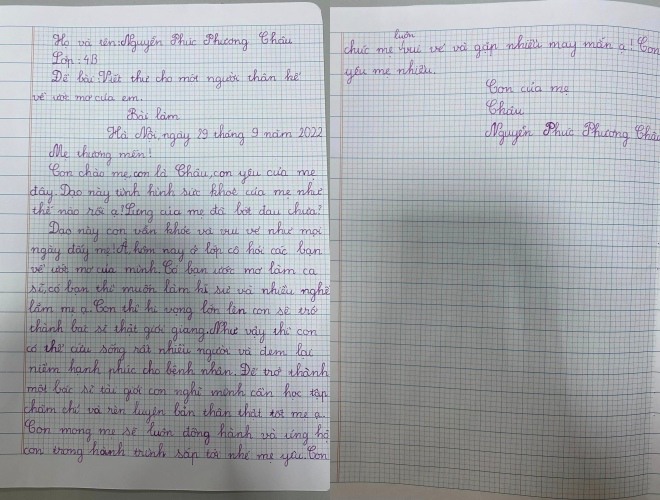 Họ và tên: Nguyễn Phúc Phương Châu
Lớp: 4B
Đề bài: Viết thư cho một người thân kể
về ước mơ của em.
Bài làm
Hà Nội, ngày 29 tháng 9 năm 2022
Mẹ thương mến!
Con chào mẹ, con là Châu, con yêu của mẹ
đây. Dạo này tình hình sức khoẻ của mẹ như
thế nào rồi ạ? Lưng của mẹ đã bớt đau chưa?
Dạo này con vẫn khỏe và vui vẻ như mọi
ngày đấy mẹ! À, hôm nay ở lớp cô hỏi các bạn
về ước mơ của mình. Có bạn ước mơ làm ca
sĩ, có bạn thì muốn làm kĩ sư và nhiều nghề
lắm mẹ ạ. Con thì hi vọng lớn lên con sẽ trở
thành bác sĩ thật giỏi giang. Như vậy thì con
có thể cứu sống rất nhiều người và đem lại
niềm hạnh phúc cho bệnh nhân. Để trở thành
một bác sĩ tài giỏi con nghĩ mình cần học tập
chăm chỉ và rèn luyện bản thân thật tốt mẹ ạ.
Con mong mẹ sẽ luôn đồng hành và ủng hộ
con trong hành trình sắp tới nhé mẹ yêu. Con
chúc mẹ luôn vui vẻ và gặp nhiều may mắn ạ! Con
yêu mẹ nhiều.
Con của mẹ
Châu
Nguyễn Phúc Phương Châu